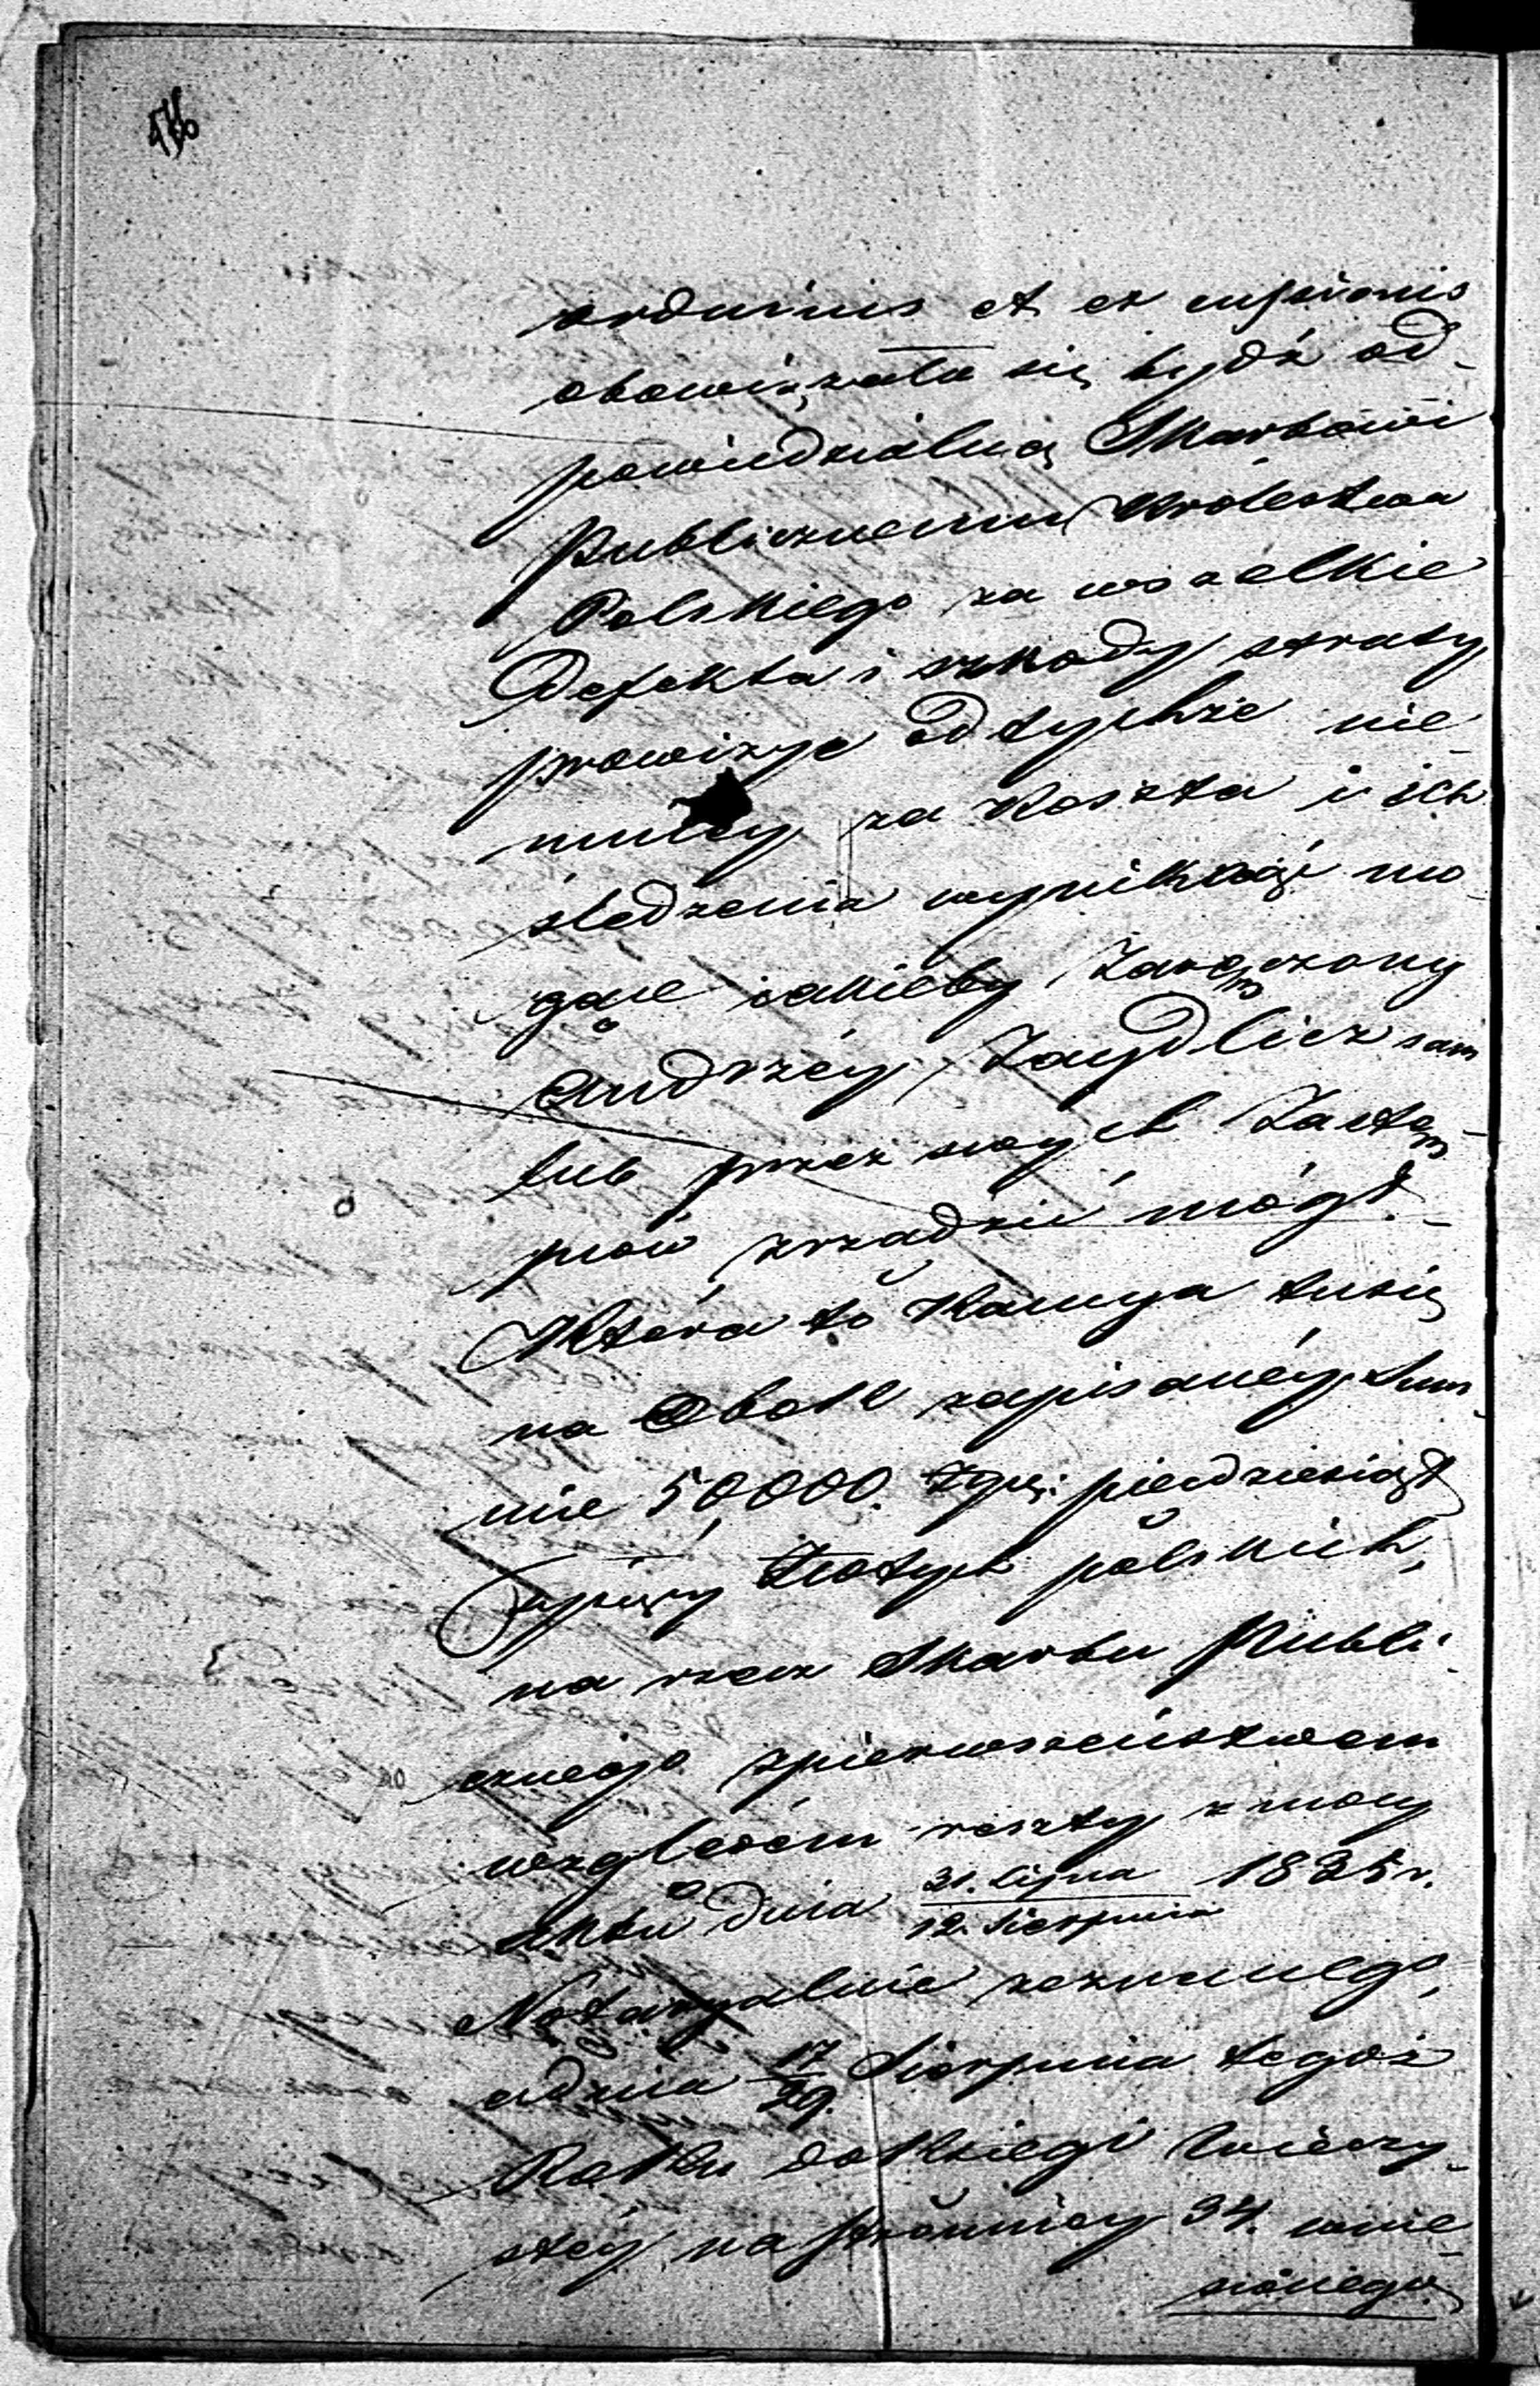 ordinis et ex
obowiązała się bydź od-
powiedzialną Skarbowi
Publicznemu Królestwa
Polskiego za wszelkie
Defekta i szkody straty
prowizye od tychże nie-
mniey za koszta i ich
śledzenia wyniknąć mo-
gące iakieby Zaręczony
Andrzéy Zaydlicz sam
lub przez swych Zastęp-
ców zrządzić mógł.
Która to Kaucya tusię
na Obok zapisanéy Sum-
mie 50,000. Złp: piędziesiąt
Tysięcy Złotych polskich,
na rzecz Skarbu Publi-
cznego zpierwszeństwem
względem reszty z mocy
Aktu dnia 31. Lipca / 12. Sierpnia 1835 r.
Notaryalnie zeznanego,
adnia 17/29. Sierpnia tegoż
Roku doksięgi Wieczy-
stéy na stronnicy 34. wnie-
sionego